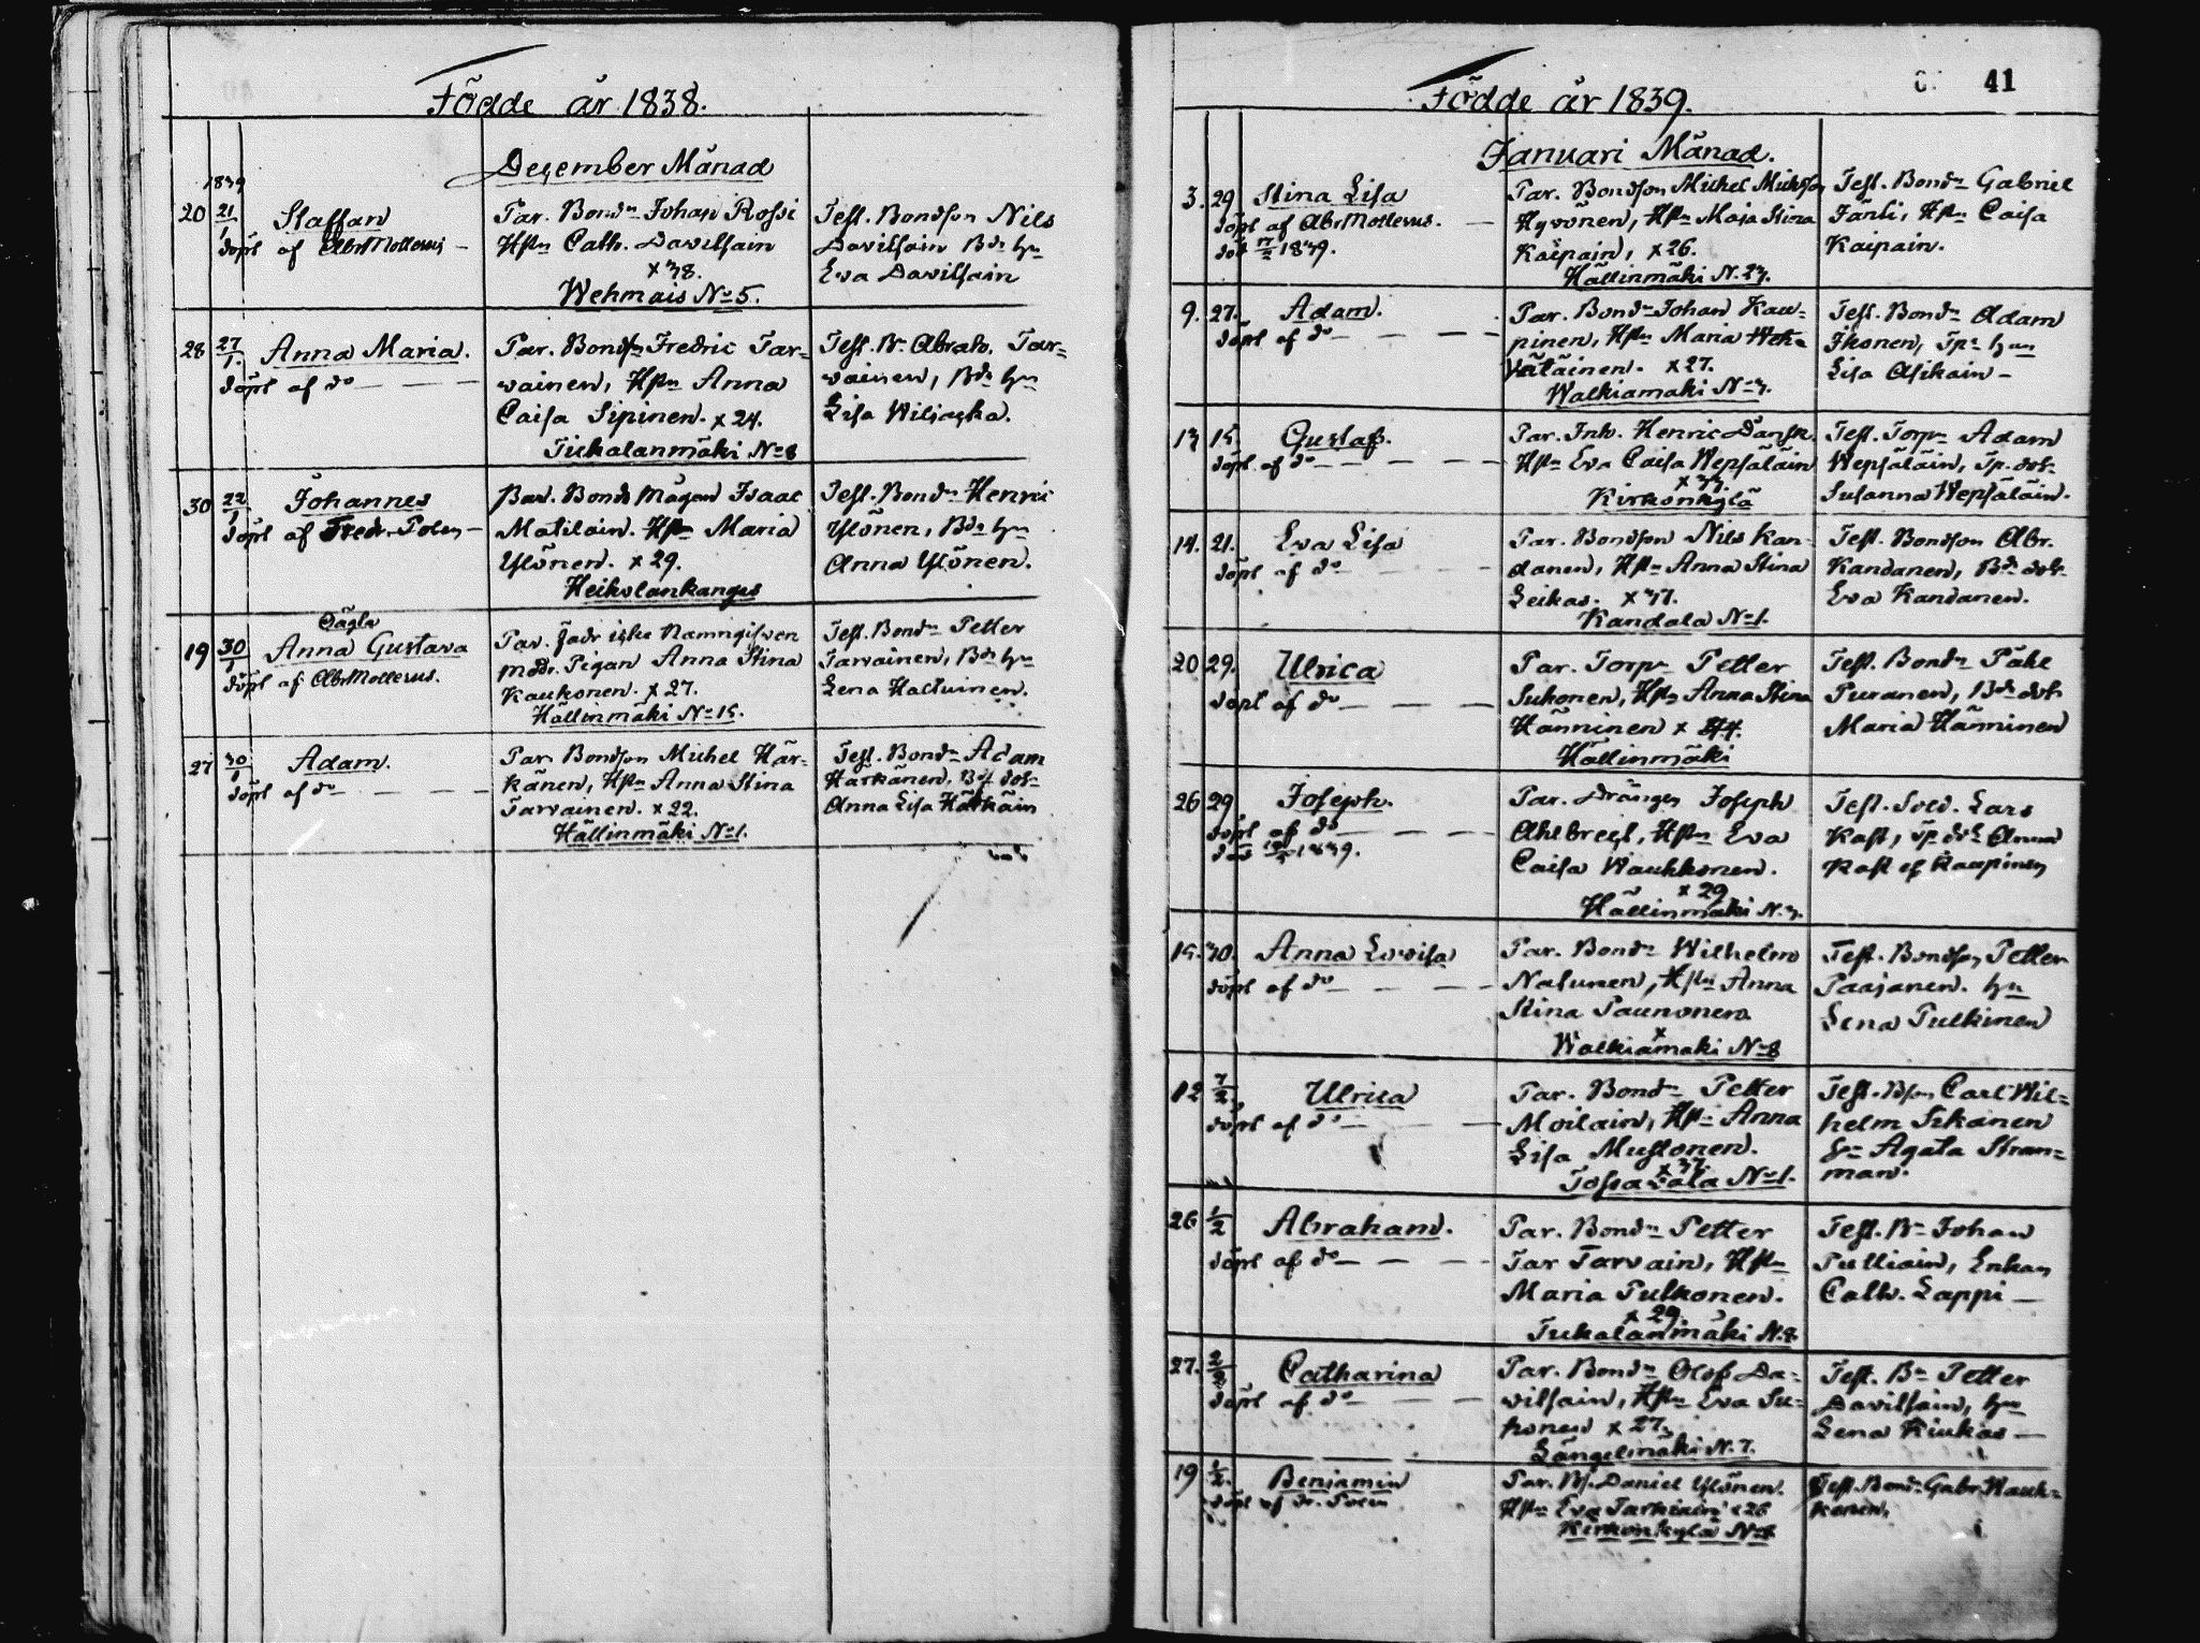 Födde år 1838.
December Månad
1839
20 21/1 Staffan
döpt af Abr Mollerus
Par. Bond:n Johan Rossi
H:n Cath. Davidsain
x 38.
Wehmais No 5.
Test. Bondson Nils
Davidsain B:de h:n
Eva Davidsain
28 27/1 Anna Maria.
döpt af d:o
Par. Bonds. Fredric Tar-
vainen, H:n Anna
Caisa Sipinen. x 24.
Tukalanmäki No 8
Test. B:n Abrah. Tar-
vainen, B:de h:n
Lisa
30 22/1 Johannes
döpt af Fredr. Polen
Par. Bonde Mågen Isaac
Matilain. H:n Maria
Ylönen. x 29.
Heikolankangas
Test. Bond:n Henric
Ylönen, B:de h:n
Anna Ylönen.
19 30/1 Oägta
Anna Gustava
döpt af Abr Mollerus.
Par. Fadr icke Namngifven
Modr. Pigan Anna Stina
Kauhonen. x 27.
Hällinmäki No 15.
Test. Bond:n Petter
Tarvainen, B:de h:n
Lena Halttuinen.
27 30/1 Adam.
döpt af d:o
Par. Bondson Michel Här-
känen, H:n Anna Stina
Tarvainen. x 22.
Hällinmäki No 1.
Test. Bond:n Adam
Härkänen, B:de dot:
Anna Lisa Härkäin
41
Födde år 1839.
Januari Månad.
3. 29 Stina Lisa
döpt af Abr Mollerus.
död 17/2 1839.
Par. Bondson Michel Michelsson
Hyvönen, H:n Maja Stina
Kaipain, x 26.
Hällinmäki N. 23.
Test. Bond:n Gabriel
Jänti, H:n Caisa
Kaipain.
9. 27. Adam.
döpt af d:o
Par. Bond:n Johan Kau-
pinen, H:n Maria
Vätäinen. x 27.
Walkiamäki No 3.
Test. Bond:n Adam
Ikonen, Tp:r h:n
Lisa Asikain
13 15. Gustaf.
döpt af d:o
Par. Inh. Henric Dansk.
H:n Eva Caisa Wepsäläin
x 33.
Kirkonkylä
Test. Torp:r Adam
Wepsäläin, Tp. dot:
Susanna Wepsäläin.
14. 21. Eva Lisa
döpt af d:o
Par. Bondson Nils Kan-
danen, H:n Anna Stina
Leikas. x 37.
Kandala No 1.
Test. Bondson Abr.
Kandanen, B:de dot:
Eva Kandanen.
20 29. Ulrica
döpt af d:o
Par. Torp:r Petter
Suhonen, H:n Anna Stina
Hänninen x 44.
Hällinmäki
Test. Bond:n Påhl
Puranen, B:de dot:
Maria Hänninen
26 29 Joseph.
döpt af d:o
Par. Drängen Joseph
Ahlbregt, H:n Eva
Caisa Waukkonen.
x 29
Hällinmäki N. 3.
Test. Sold. Lars
Rast, Tp. dot: Anna
Rast af Kaupinen
15. 30. Anna Lovisa
döpt af d:o
Par. Bond:n Wilhelm
Nalunen, H:n Anna
Stina Paunonen
x
Walkiamäki No 8
Test. Bondson Petter
Paajanen. h:n
Lena Pulkinen
12 7/2 Ulrica
döpt af d:o
Par. Bond:n Petter
Moilain, H:n Anna
Lisa Mustonen.
x 37.
Tossavala No 1.
Test. Bson Carl Wil-
helm Sikanen
Agata Stran-
man.
26 1/2 Abraham.
döpt af d:o
Par. Bond:n Petter
Tar Tarvain, H:n
Maria Pulkonen.
x 29.
Tukalanmäki N. 8.
Test. B:n Johan
Pulliain, Enkan
Cath. Lappi
27. 2/2 Catharina
döpt af d:o
Par. Bond:n Olof Da-
vidsain, H:n Eva Su-
honen x 27.
Längelmäki N. 7.
Test. B:n Petter
Davidsain, h:n
Lena Kiukas
19 1/2 Benjamin
döpt af Fr. Polen
Par. Daniel Ylönen.
H:n Eva Tarkiain x 26
Kirkonkylä No 8
Test. Bond:n Gabr. Hauk-
konen,